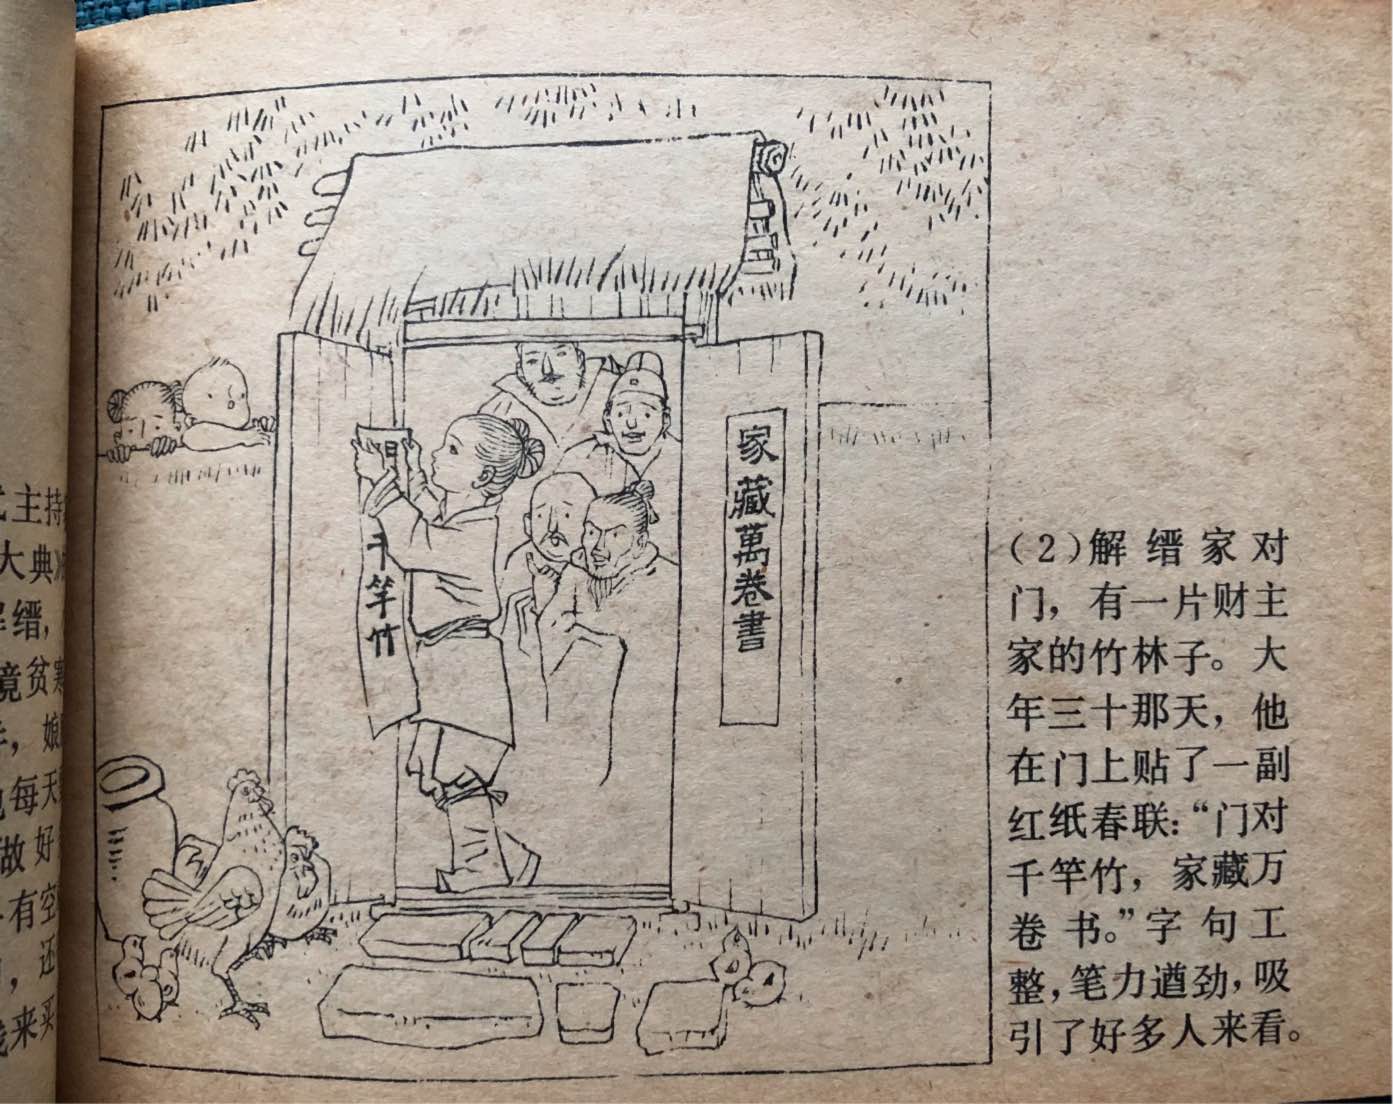 主持
大典
缙，
境贫寒
，娘
每天
做好
有空
，还
来买
千竿竹
家藏萬卷書
(2)解缙家对
门，有一片财主
家的竹林子。大
年三十那天，他
在门上贴了一副
红纸春联：“门对
千竿竹，家藏万
卷书。”字句工
整，笔力遒劲，吸
引了好多人来看。